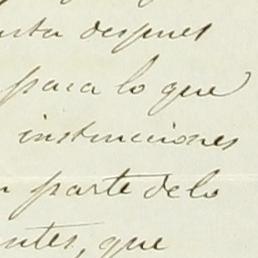 despues
para lo que
instrucciones
parte de lo
que